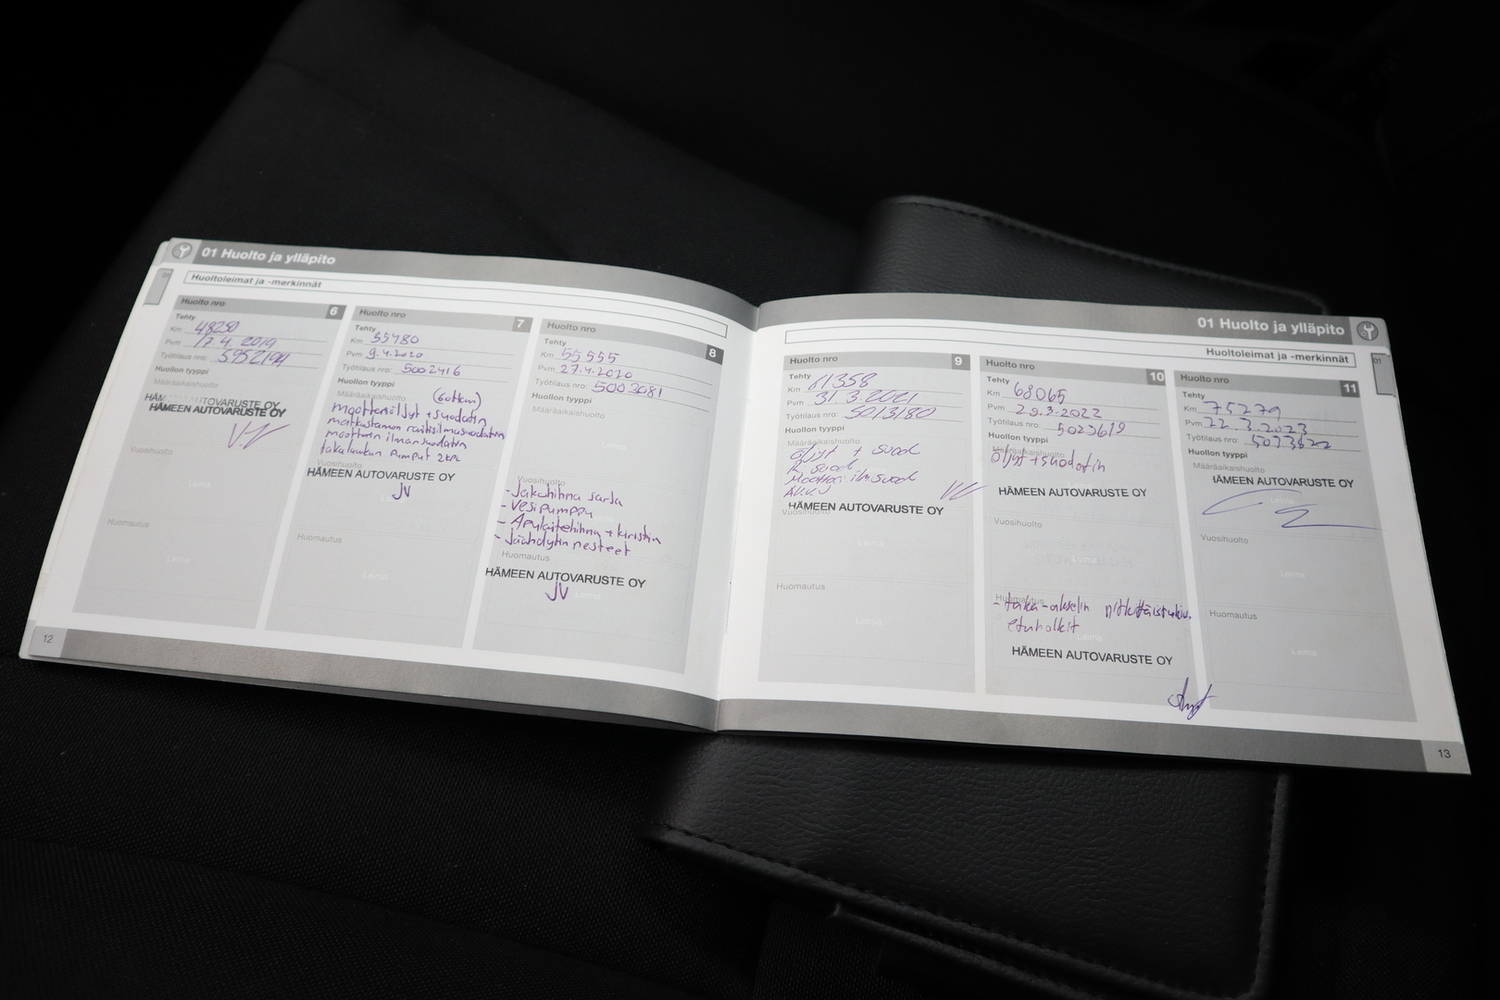 01 Huolto ja ylläpito
Huoltoleimat ja -merkinnät
Huolto nro 6
Tehty
Km 48250
Pvm 17.4 2019
Työtilaus nro:
Huollon tyyppi
Määräaikaishuolto
HÄMEEN AUTOVARUSTE OY
HÄMEEN AUTOVARUSTE OY
Vuosihuolto
Leima
Huomautus
Leima
Huolto nro 7
Tehty
Km 55480
Pvm 9.4.2020
Työtilaus nro: 5002416
Huollon tyyppi
(60tkm)
moottoriöljyt + suodatin
matkustamon raitisilmasuodatin
moottorin ilmansuodatin
takaluukun pumput 2kpl
Vuosihuolto
HÄMEEN AUTOVARUSTE OY
JV
Huomautus
Leima
Huolto nro 8
Tehty
Km 55555
Pvm 27.4.2020
Työtilaus nro: 5003081
Huollon tyyppi
Määräaikaishuolto
Leima
Vuosihuolto
- Jakohihna sarja
- Vesipumppu
- Apulaitehihna + kiristin
- Jäähdytin nesteet
Huomautus
HÄMEEN AUTOVARUSTE OY
JV
Leima
12
01 Huolto ja ylläpito
Huoltoleimat ja -merkinnät
Huolto nro 9
Tehty
Km 61358
Pvm 31.3.2021
Työtilaus nro: 5013180
Huollon tyyppi
Määräaikaishuolto
öljyt + suod
R. suod
Moottori ilm suod
HÄMEEN AUTOVARUSTE OY
Vuosihuolto
Leima
Huomautus
Leima
Huolto nro 10
Tehty
Km 68065
Pvm 29.3.2022
Työtilaus nro: 5023619
Huollon tyyppi
Määräaikaishuolto
öljyt + suodatin
HÄMEEN AUTOVARUSTE OY
Vuosihuolto
Leima
Huomautus
- taka-akselin pitkittäistukiv.
etuholkit
Leima
HÄMEEN AUTOVARUSTE OY
Huolto nro 11
Tehty
Km 75279
Pvm 22.3.2023
Työtilaus nro: 5033622
Huollon tyyppi
Määräaikaishuolto
HÄMEEN AUTOVARUSTE OY
Leima
Vuosihuolto
Leima
Huomautus
Leima
13